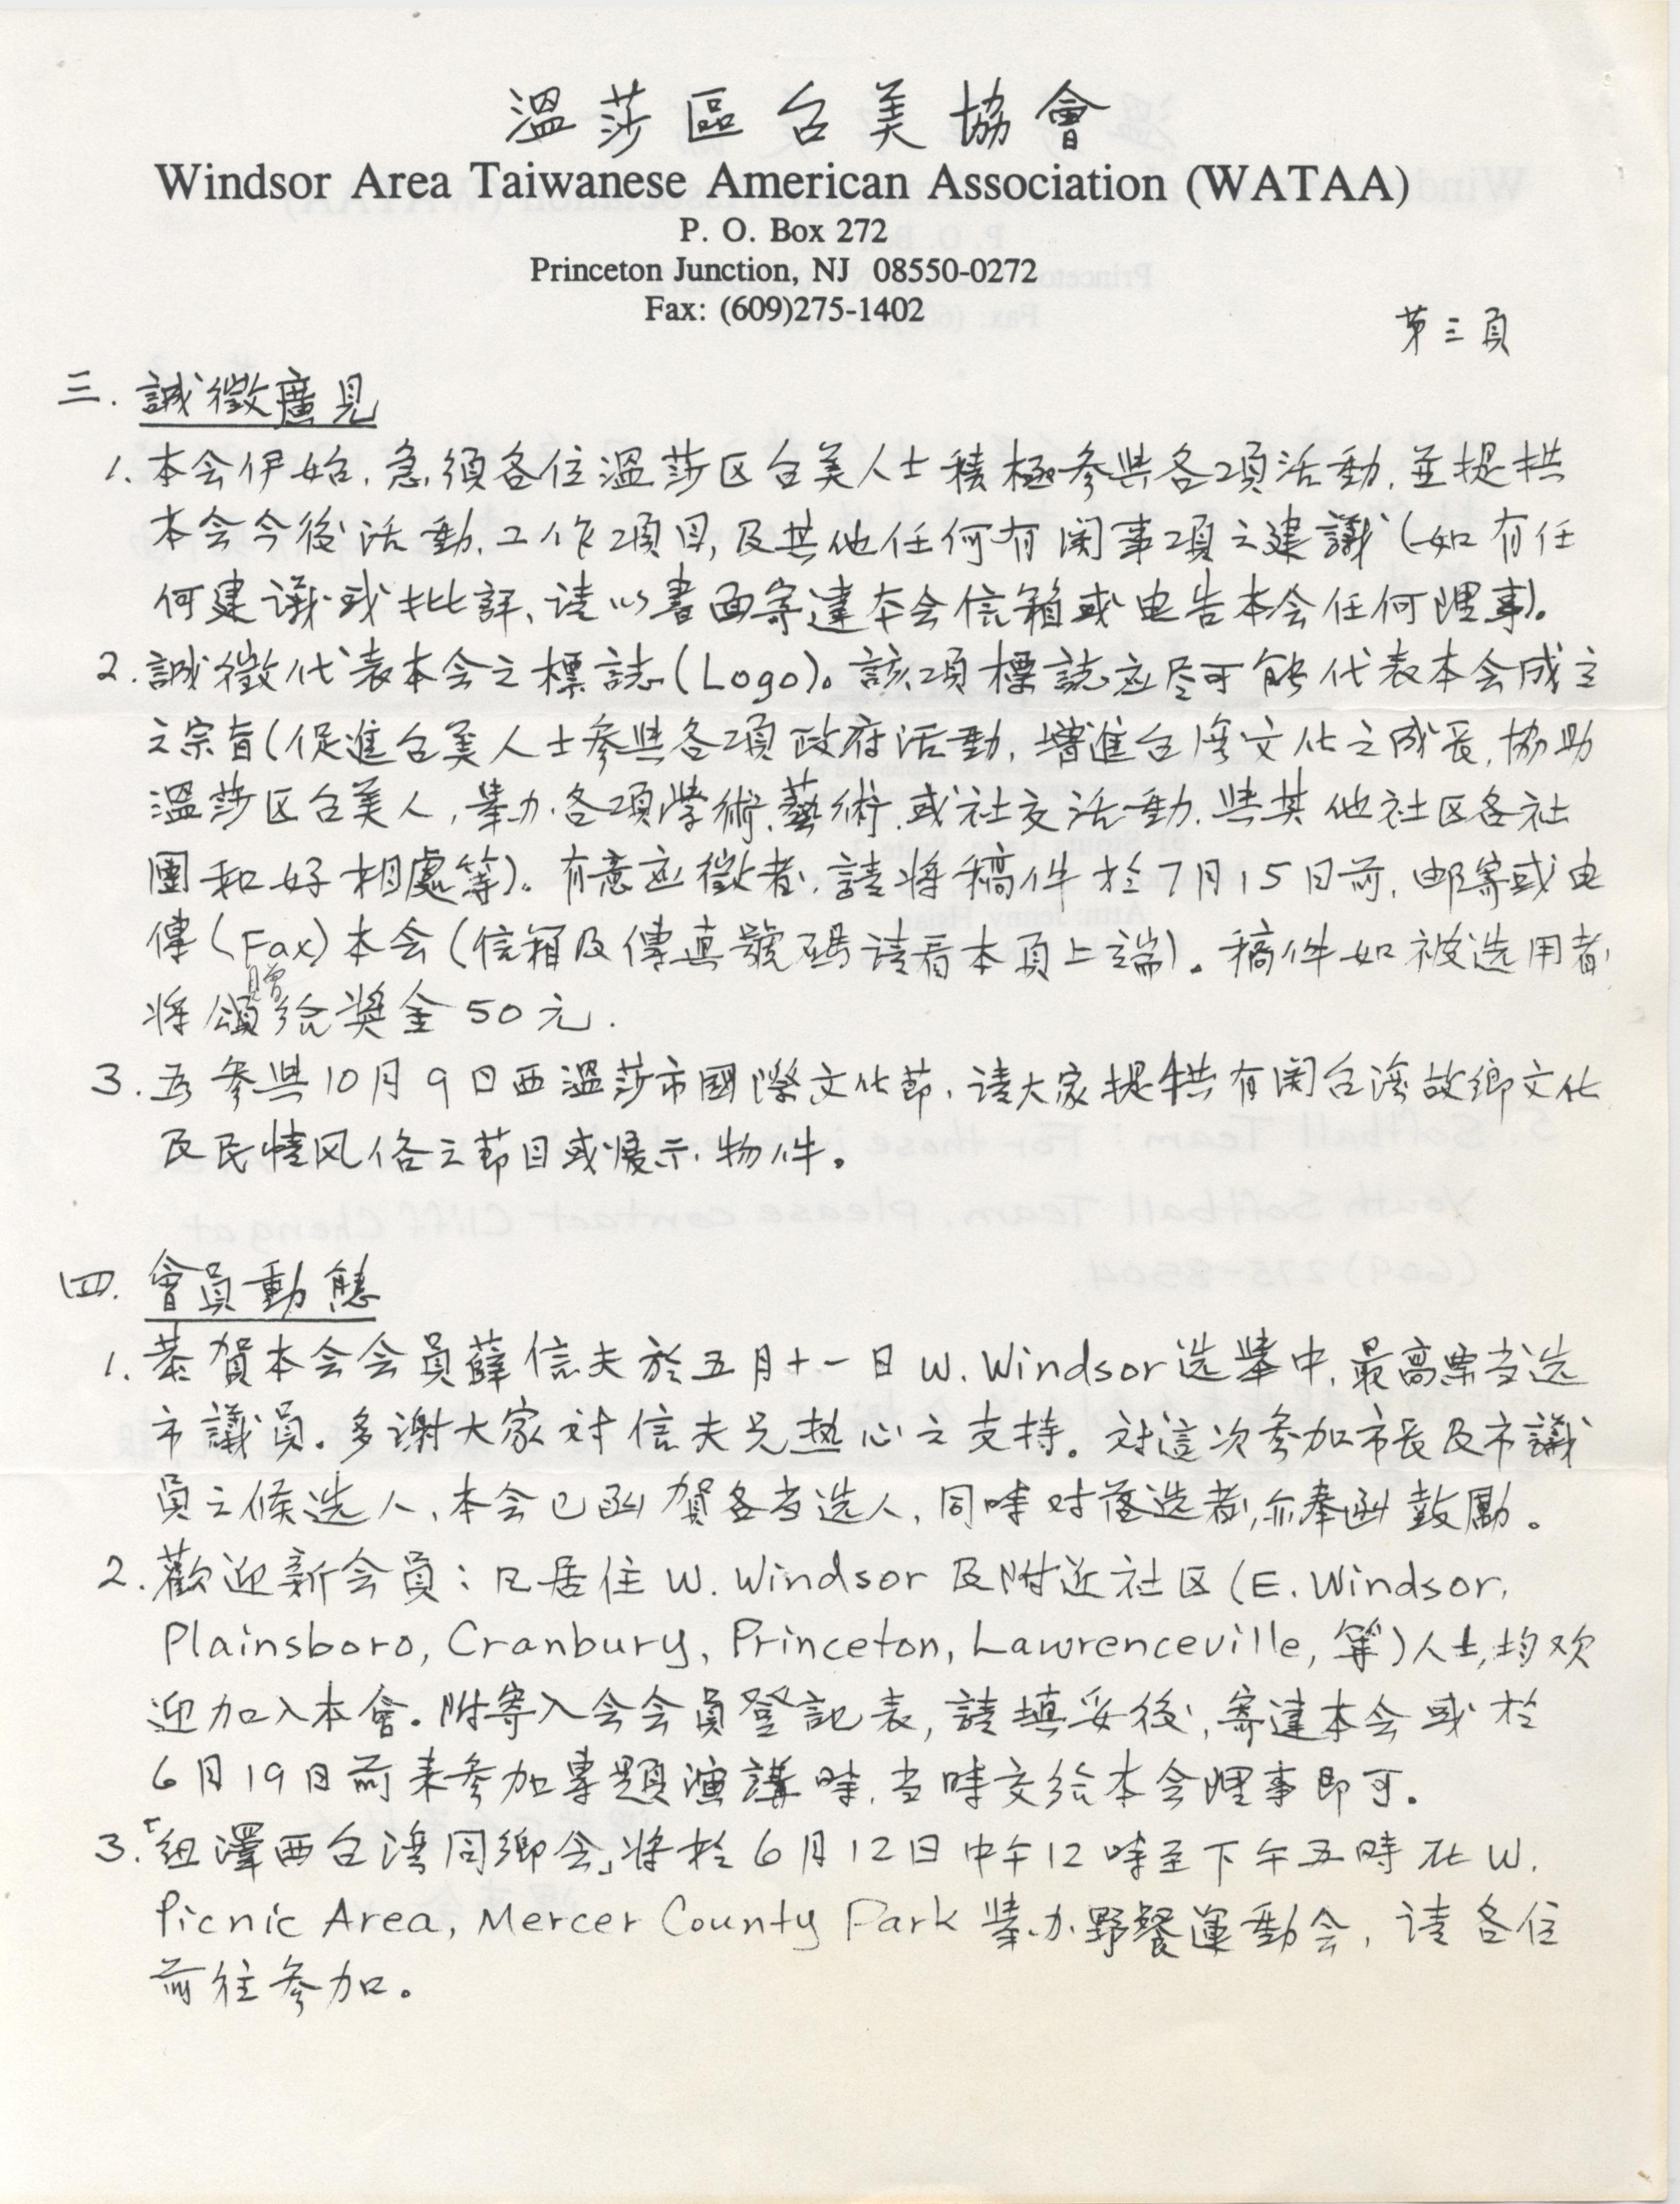 溫莎區台美協會
Windsor Area Taiwanese American Association (WATAA)
P. O. Box 272
Princeton Junction, NJ 08550-0272
Fax: (609)275-1402
第三頁
三. 誠徵廣見
1. 本会伊始, 急須各位溫莎区台美人士積極参與各項活動, 並提拱
本会今後活動、工作項目, 及其他任何有関事項之建議 (如有任
何建议或批評、请以書面寄達本会信箱或电告本会任何理事)。
2. 誠徵代表本会之標誌(Logo)。該項標誌应尽可能代表本会成立
之宗旨(促進台美人士参與各項政府活動, 增進台湾文化之成長, 協助
溫莎区台美人, 舉办各項學術、藝術、或社交活動, 與其他社区各社
團和好相處等)。有意应徵者, 請将稿件於7月15日前, 邮寄或电
傳(Fax)本会(信箱及傳真號碼请看本頁上端)。稿件如被选用者,
将頒贈给奖金50元.
3. 為参與10月9日西溫莎市國際文化節, 请大家提供有関台湾故鄉文化
及民情风俗之節目或展示物件。
四. 會員動態
1. 恭賀本会会員薛信夫於五月十一日W. Windsor选舉中, 最高票当选
市議員。多謝大家对信夫兄热心之支持。对這次参加市長及市議
員之候选人, 本会已函賀各当选人, 同時对落选者, 亦奉函鼓勵。
2. 歡迎新会員: 凡居住W. Windsor及附近社区(E. Windsor,
Plainsboro, Cranbury, Princeton, Lawrenceville, 等)人士, 均欢
迎加入本會。附寄入会会員登記表, 請填妥後, 寄達本会或於
6月19日前来参加專題演講時, 当時交给本会理事即可。
3. 「纽澤西台湾同鄉会」将於6月12日中午12時至下午五時在W.
Picnic Area, Mercer County Park舉办野餐運動会, 请各位
前往参加。